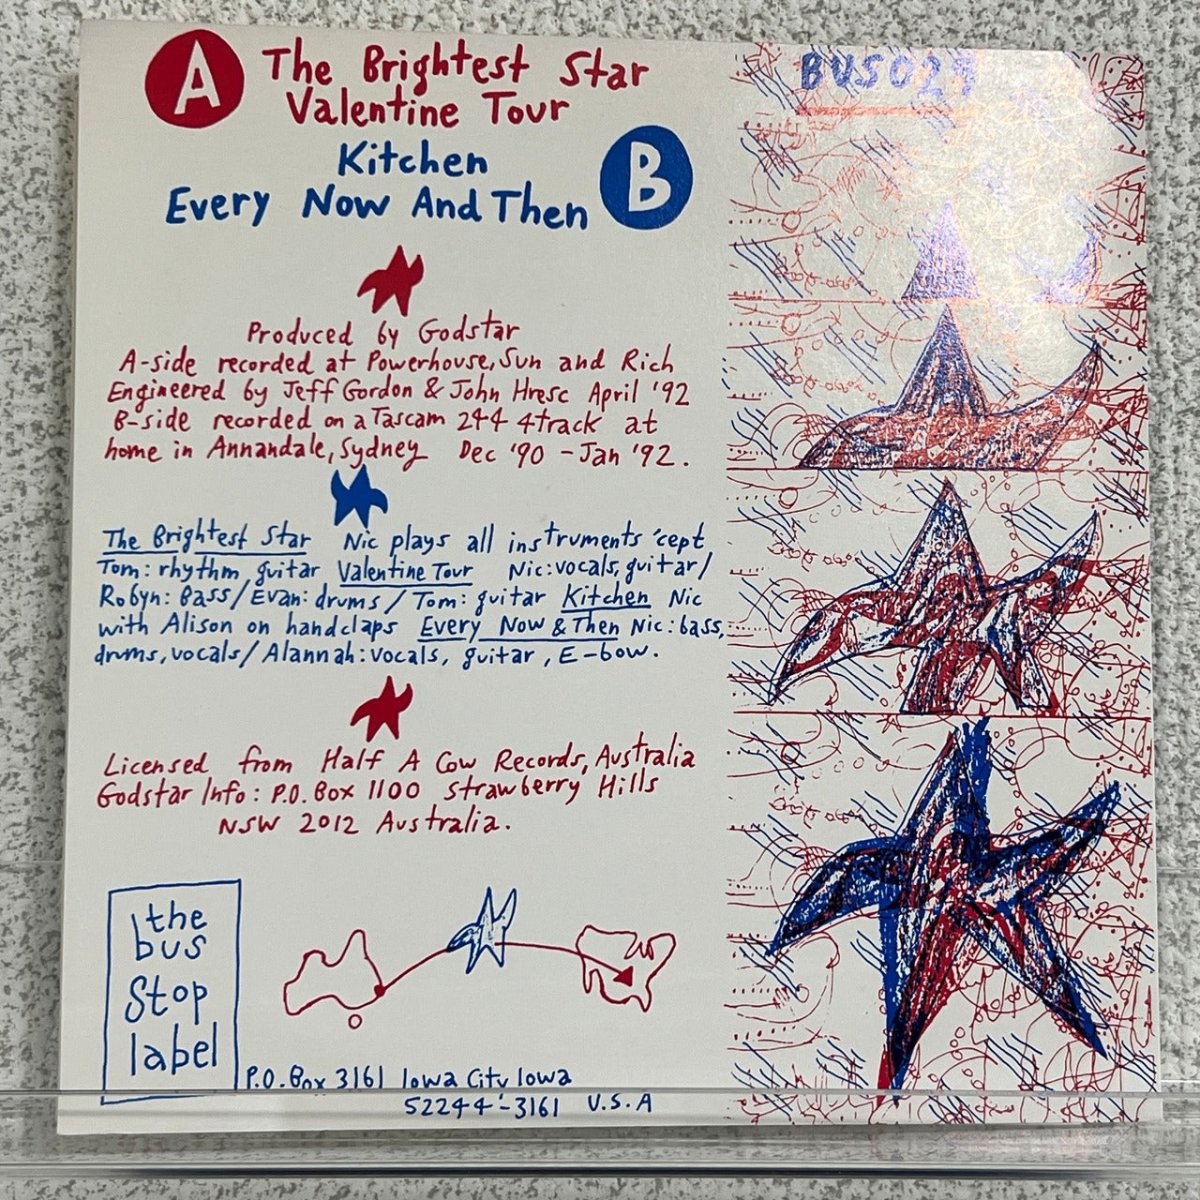 A The Brightest Star
Valentine Tour
Kitchen
Every Now And Then B
BUS029
Produced by Godstar
A-side recorded at Powerhouse, Sun and Rich
Engineered by Jeff Gordon & John Hresc April '92
B-side recorded on a Tascam 244 4track at
home in Annandale, Sydney Dec '90 - Jan '92.
The Brightest Star Nic plays all instruments 'cept
Tom: rhythm guitar Valentine Tour Nic: vocals, guitar/
Robyn: Bass/ Evan: drums/ Tom: guitar Kitchen Nic
with Alison on handclaps Every Now & Then Nic: bass,
drums, vocals/ Alannah: vocals, guitar, E-bow.
Licensed from Half A Cow Records, Australia
Godstar Info: P.O. Box 1100 Strawberry Hills
NSW 2012 Australia.
the
bus
stop
label
P.O. Box 3161 Iowa City Iowa
52244-3161 U.S.A